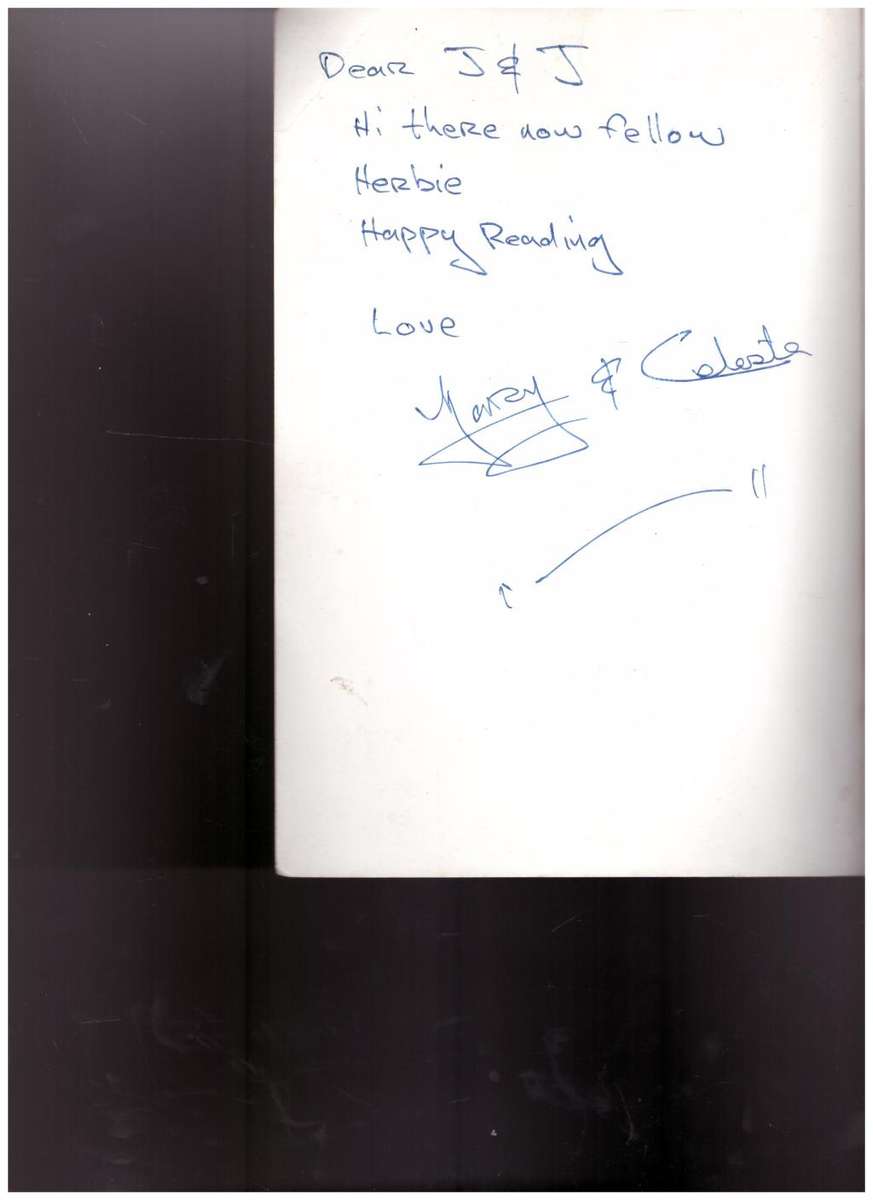 Dear J & J
Hi there now fellow
Herbie
Happy Reading
Love
Marzy & Celeste